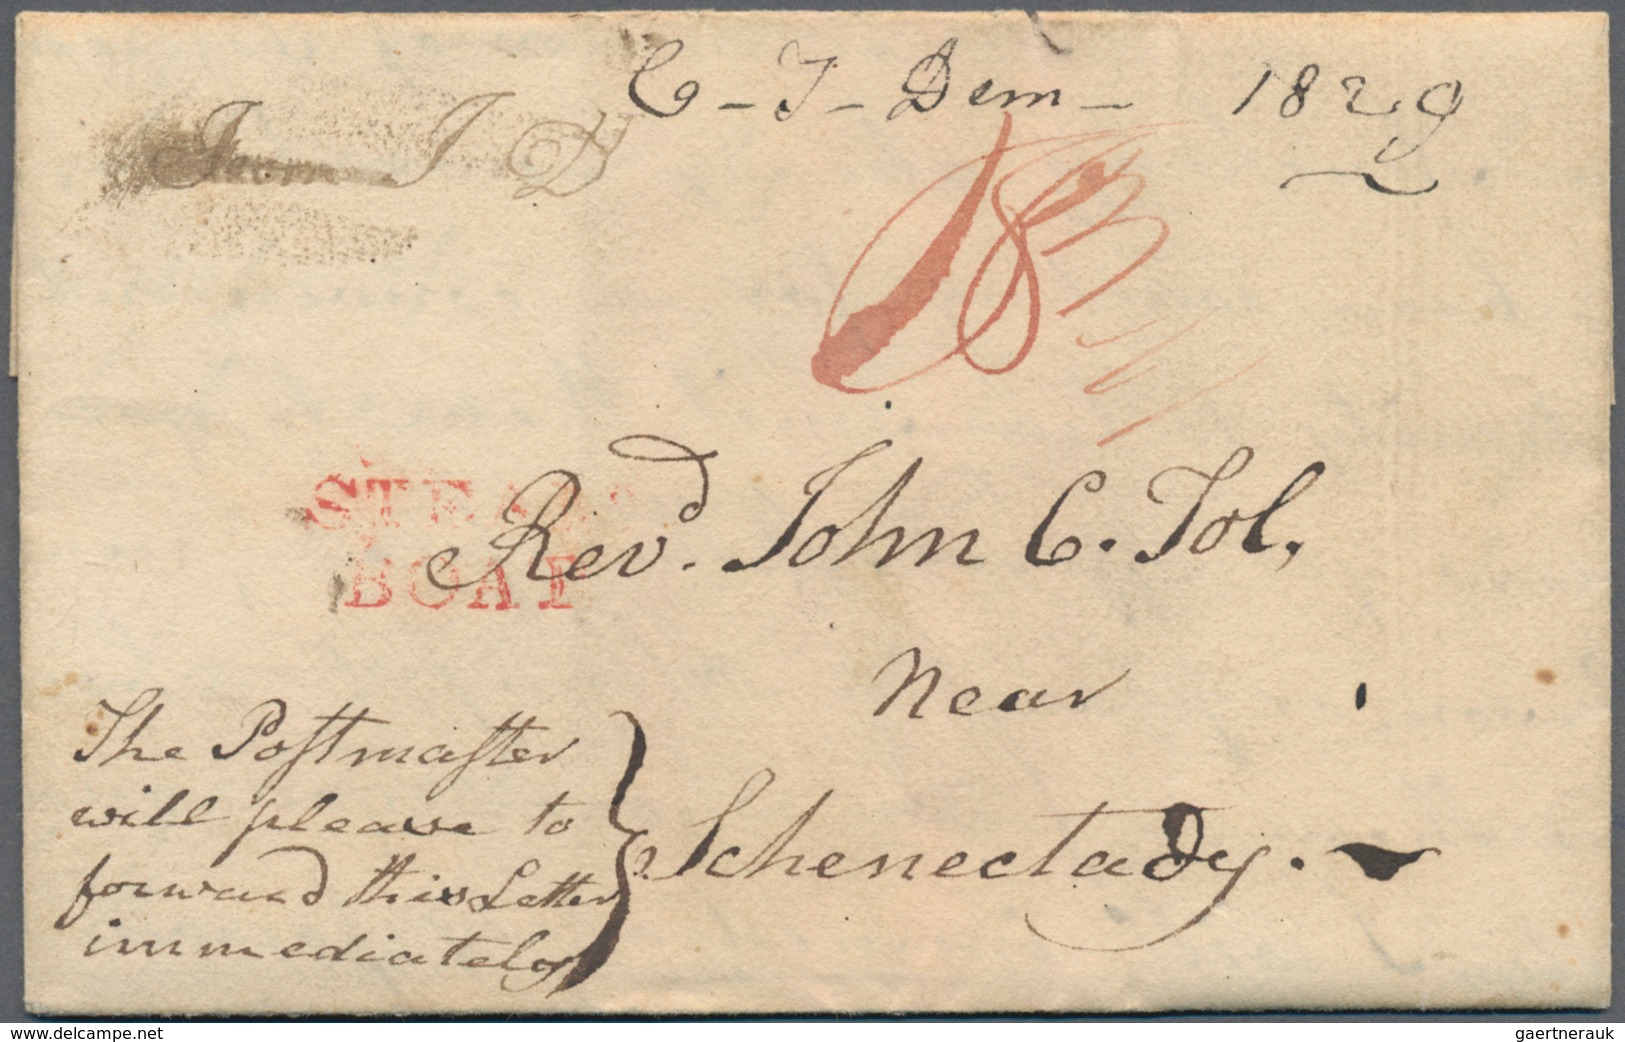 C - J - Dem - 1829
J D
18
STEAM
BOAT
Revd. John C. Tol,
Near
Schenectady.
The Poſtmaſter
will please to
forward this Letter
immediately
www.delcampe.net
gaertnerauk